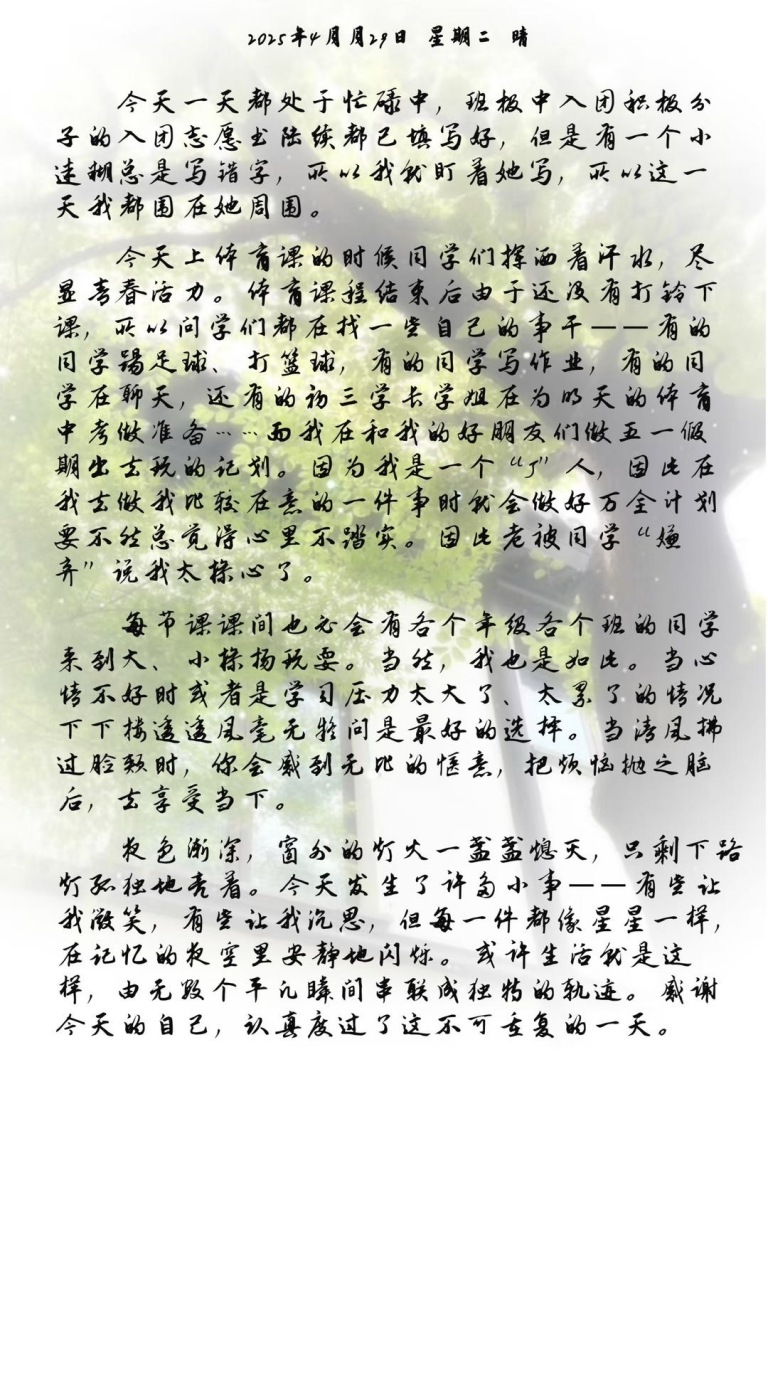 2025年4月月29日 星期二 晴
今天一天都处于忙碌中，班级中入团积极分
子的入团志愿书陆续都已填写好，但是有一个小
迷糊总是写错字，所以我就盯着她写，所以这一
天我都围在她周围。
今天上体育课的时候同学们挥洒着汗水，尽
显青春活力。体育课程结束后由于还没有打铃下
课，所以同学们都在找一些自己的事干——有的
同学踢足球、打篮球，有的同学写作业，有的同
学在聊天，还有的初三学长学姐在为明天的体育
中考做准备……而我在和我的好朋友们做五一假
期出去玩的记划。因为我是一个“J”人，因此在
我去做我比较在意的一件事时就会做好万全计划
要不然总觉得心里不踏实。因此老被同学“嫌
弃”说我太操心了。
每节课课间也必会有各个年级各个班的同学
来到大、小操场玩耍。当然，我也是如此。当心
情不好时或者是学习压力太大了、太累了的情况
下下楼透透风毫无疑问是最好的选择。当清风拂
过脸颊时，你会感到无比的惬意，把烦恼抛之脑
后，去享受当下。
夜色渐深，窗外的灯火一盏盏熄灭，只剩下路
灯孤独地亮着。今天发生了许多小事——有些让
我微笑，有些让我沉思，但每一件都像星星一样，
在记忆的夜空里安静地闪烁。或许生活就是这
样，由无数个平凡瞬间串联成独特的轨迹。感谢
今天的自己，认真度过了这不可重复的一天。